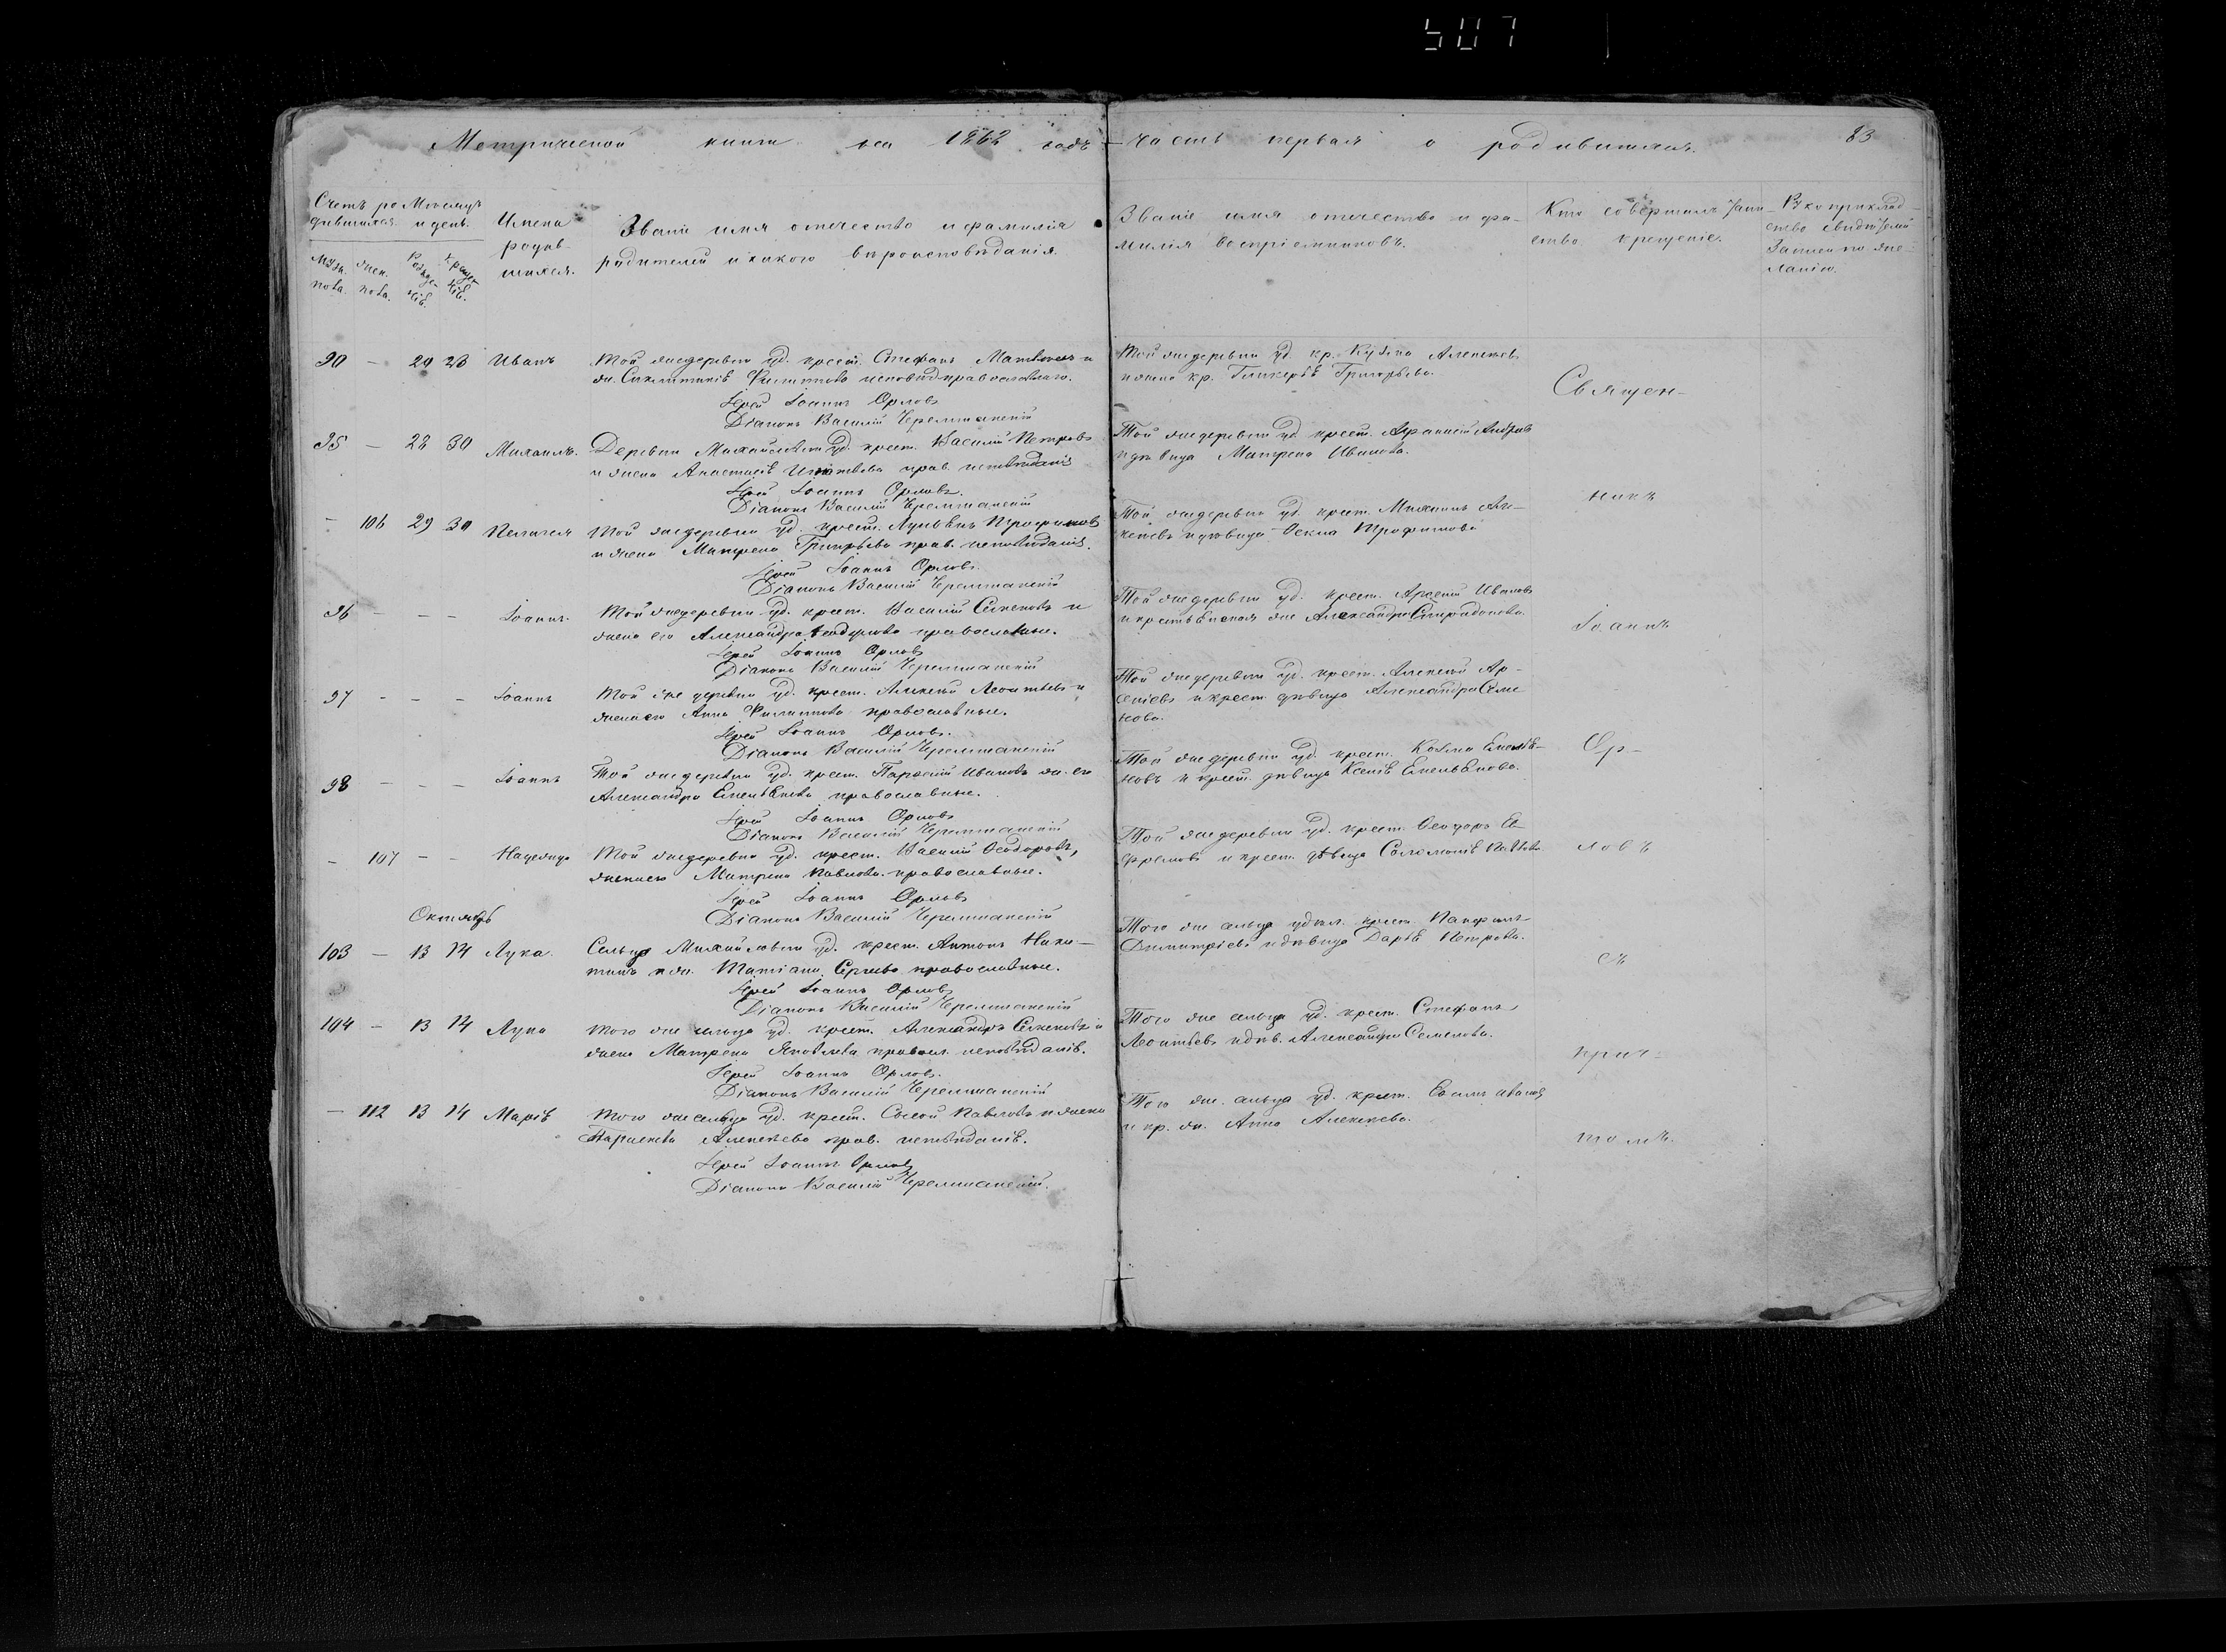 507
Метрической книги на 1862 годъ
Счетъ ро Мѣсяцъ
дившихся. и день.
Имена
родив-
шихся.
Званіе имя отечество и фамилія
родителей и какого вѣроисповѣданія.
муж.
пола.
жен.
пола.
Рожде-
нія.
Креще-
нія.
90 — 24 28 Иванъ Той же деревни уд. крест. Стефанъ Матвѣевъ и
жен. Филиппова исповѣд. православнаго.
Іерей Іоаннъ Орловъ
Діаконъ Василій Черемшанскій
95 — 28 30 Михаилъ. Деревни Михайловки уд. крест. Василій Петровъ
и жена Анастасія Игнатьева прав. исповѣданія
Іерей Іоаннъ Орловъ.
Діаконъ Василій Черемшанскій
— 106 29 30 Пелагея Той же деревни уд. крест. Лукьянъ Трофимовъ
и жена Матрена Григорьева прав. исповѣданія.
Іерей Іоаннъ Орловъ.
Діаконъ Василій Черемшанскій
96 — — — Іоаннъ. Той же деревни уд. крест. Василій Семеновъ и
жена его Александра Феодулова православные.
Іерей Іоаннъ Орловъ
Діаконъ Василій Черемшанскій
97 — — — Іоаннъ Той же деревни уд. крест. Алексѣй Леонтьевъ и
жена его Анна Филиппова православные.
Іерей Іоаннъ Орловъ.
Діаконъ Василій Черемшанскій
98 — — — Іоаннъ Той же деревни уд. крест. Ивановъ ж. его
Александра Емельянова православные.
Іерей Іоаннъ Орловъ
Діаконъ Василій Черемшанскій
— 107 — — Надежда Той же деревни уд. крест. Василій Ѳеодоровъ,
жена его Матрена Павлова православные.
Іерей Іоаннъ Орловъ
Діаконъ Василій Черемшанскій
Октябрь
103 — 13 14 Лука. Сельца Михайловки уд. крест. Антонъ Ники-
тинъ и ж. Татіана Сергѣева православные.
Іерей Іоаннъ Орловъ
Діаконъ Василій Черемшанскій
104 — 13 14 Лука Того же сельца уд. крест. Александръ Семеновъ и
жена Матрена Яковлева правосл. исповѣданія.
Іерей Іоаннъ Орловъ.
Діаконъ Василій Черемшанскій
— 112 13 14 Марія Того же сельца уд. крест. Сысой Павловъ и жена
Алексѣева прав. исповѣданія.
Іерей Іоаннъ Орловъ
Діаконъ Василій Черемшанскій.
часть первая о родившихся.
83
Званіе имя отечество и фа-
милія воспріемниковъ.
Кто совершалъ таин-
ство крещеніе.
Рукоприклад-
ство свидѣтелей
записи по же-
ланію.
Той же деревни уд. кр. Кузма Алексѣевъ
кр. Гликерія Григорьева.
Той же деревни уд. крест. Андреевъ
и дѣвица Матрена Иванова.
Той же деревни уд. крест. Михаилъ Але-
ксѣевъ и дѣвица Ѳекла Трофимова
Той же деревни уд. крест. Арсеній Ивановъ
и крестьянская же. Александра Спиридонова.
Той же деревни уд. крест. Алексѣй Ар-
сеніевъ и крест. дѣвица Александра Семе
нова.
Той же деревни уд. крест. Козма Емелья-
новъ и крест. дѣвица Ксенія Емельянова.
Той же деревни уд. крест. Ѳеодоръ Е-
фремовъ и крест. дѣвица Соломонія Павлова
Того же сельца удѣл. крест. Панфилъ
Димитріевъ и дѣвица Дарья Петрова.
Того же сельца уд. крест. Стефанъ
Леонтьевъ и дѣв. Александра Семенова.
Того же сельца уд. крест.
и кр. ж. Анна Алексѣева.
Священ-
никъ
Іоаннъ
Ор-
ловъ
съ
прич-
томъ.